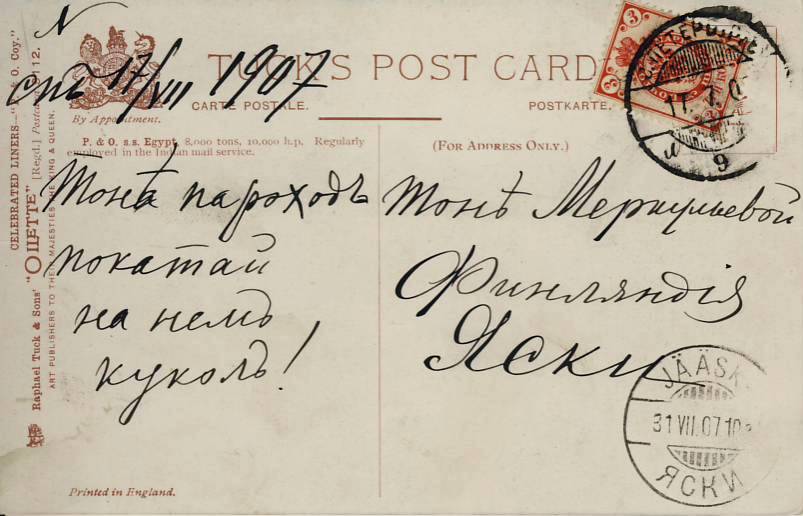 N
спб 17/VII 1907
TUCK'S POST CARD
CARTE POSTALE.
POSTKARTE.
By Appointment.
P. & O. s.s. Egypt, 8,000 tons, 10,000 h.p. Regularly
employed in the Indian mail service.
(FOR ADDRESS ONLY.)
CELEBRATED LINERS—"P. & O. Coy."
Raphael Tuck & Sons' "OILETTE" [Regd.] Postcard 9112.
ART PUBLISHERS TO THEIR MAJESTIES THE KING & QUEEN.
Тонѣ пароходъ
покатай
на немъ
куколъ!
Тонѣ Меркульевой
Финляндія
Яски
3
3
17. 7. 0
9
JÄÄSK
31 VII.07.10
ЯСКИ
Printed in England.